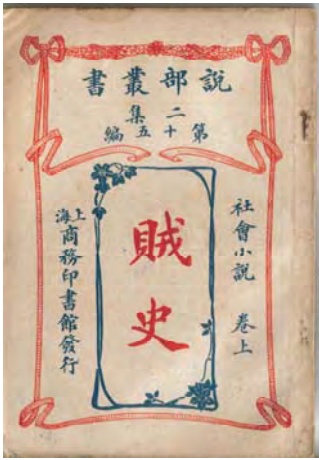 說部叢書
二集
第十五編
社會小說 卷上
賊史
上海商務印書館發行